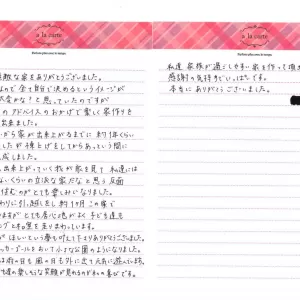 a la carte
敵な家をありがとうございました。
ので全て自分で決めるというイメージが
大変かな!と思っていたのですが
のアドバイスのおかげで楽しく家作りを
出来ました。
から家が出来上がるまでに約1年くらい
したが棟上げをしてからあっという間に
成しました。
出来上がっていく我が家を見て私達には
ないくらいの立派な家だなと思う反面
住むのが"とても楽しみになりました。
わりに引っ越しをし約1カ月この家で
ますがとても居心地がよく子ども達も
プと和室を走りまわっています。
がほしいという夢も叶えて下さりありがとうございました。
を置いて小さな公園のようになりました。
は雨の日も風の日も外に出て元気に遊んでいます。
達の楽しそうな笑顔が見れるのが私の喜びです。
a la carte
私達家族が過ごしやすい家を作って頂き
感謝の気持ちでいっぱいです。
本当にありがとうございました。